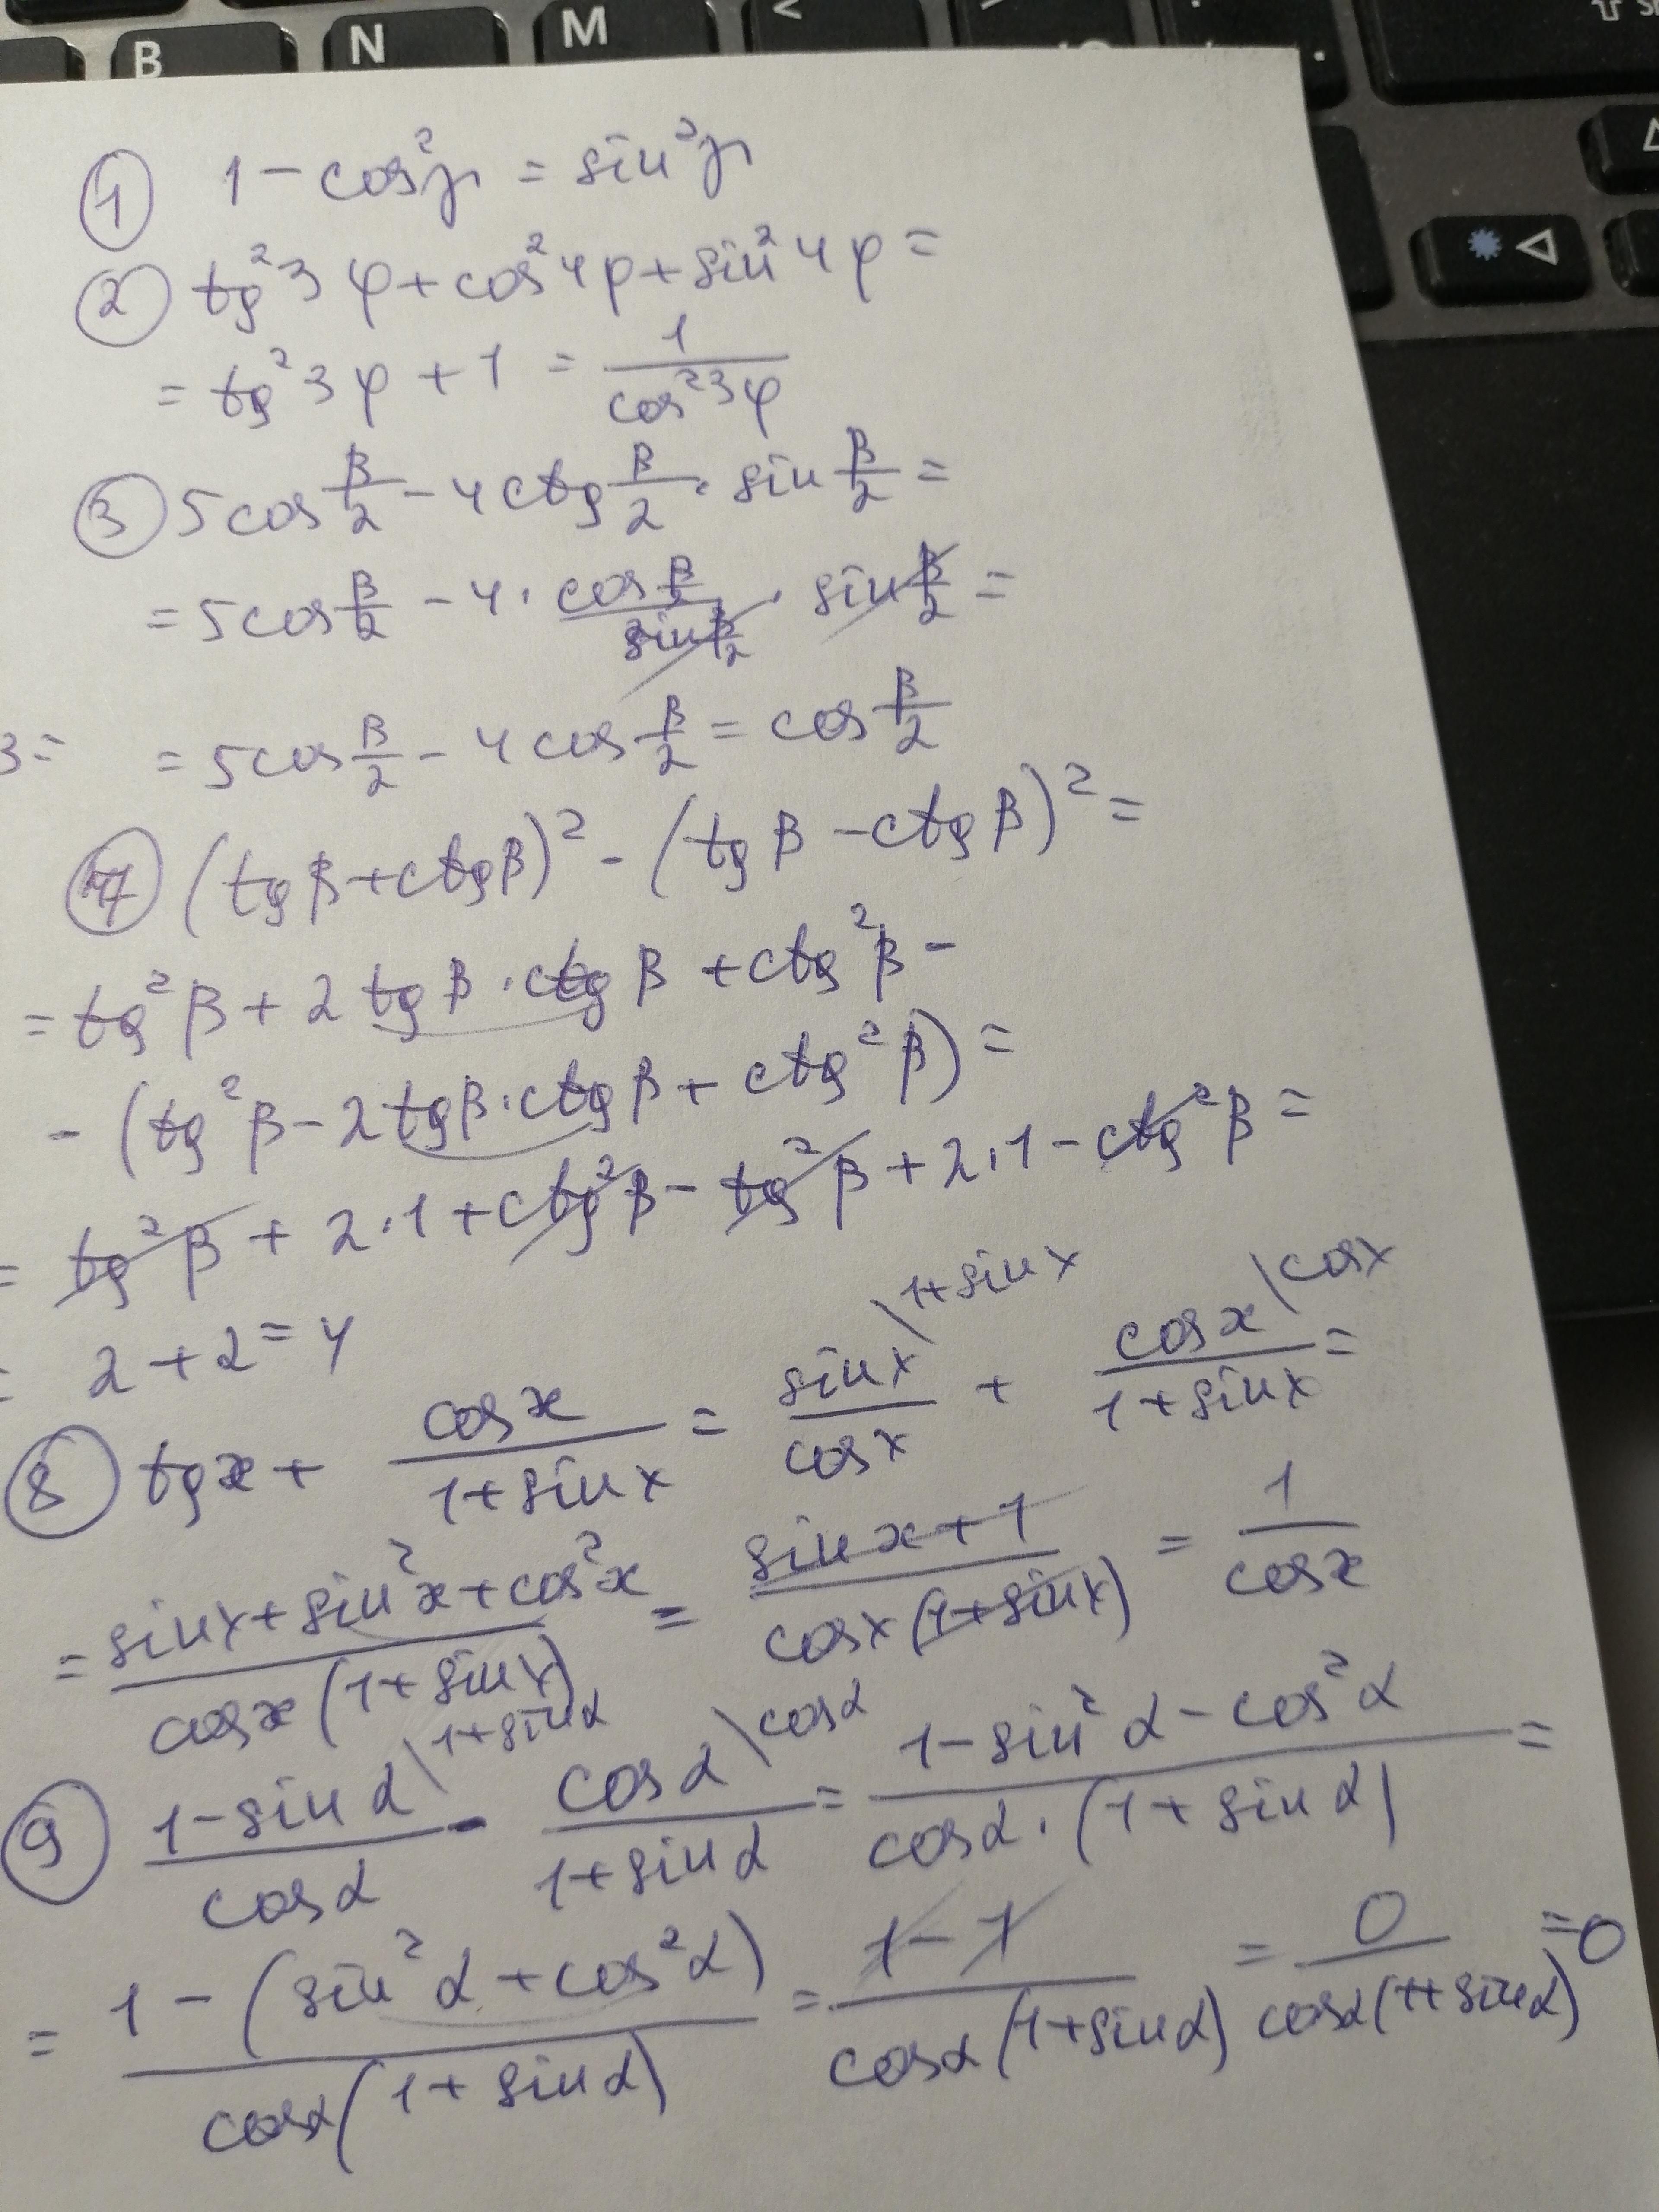 B N M <
① 1 - cos²γ = sin²γ
② tg²3φ + cos²4φ + sin²4φ =
= tg²3φ + 1 = 1/cos²3φ
③ 5cos β/2 - 4ctg β/2 · sin β/2 =
= 5cos β/2 - 4 · (cos β/2)/(sin β/2) · sin β/2 =
3 = = 5cos β/2 - 4cos β/2 = cos β/2
⑦ (tgβ + ctgβ)² - (tgβ - ctgβ)² =
= tg²β + 2tgβ · ctgβ + ctg²β -
- (tg²β - 2tgβ · ctgβ + ctg²β) =
= tg²β + 2·1 + ctg²β - tg²β + 2·1 - ctg²β =
= 2 + 2 = 4
⑧ tgx + cosx/(1+sinx) = sinx/cosx \1+sinx + cosx/(1+sinx) \cosx =
= (sinx + sin²x + cos²x)/(cosx(1+sinx)) = (sinx+1)/(cosx(1+sinx)) = 1/cosx
⑨ (1-sinα)/cosα \1+sinα - cosα/(1+sinα) \cosα = (1 - sin²α - cos²α)/(cosα·(1+sinα)) =
= (1 - (sin²α + cos²α))/(cosα(1+sinα)) = (1-1)/(cosα(1+sinα)) = 0/(cosα(1+sinα)) = 0